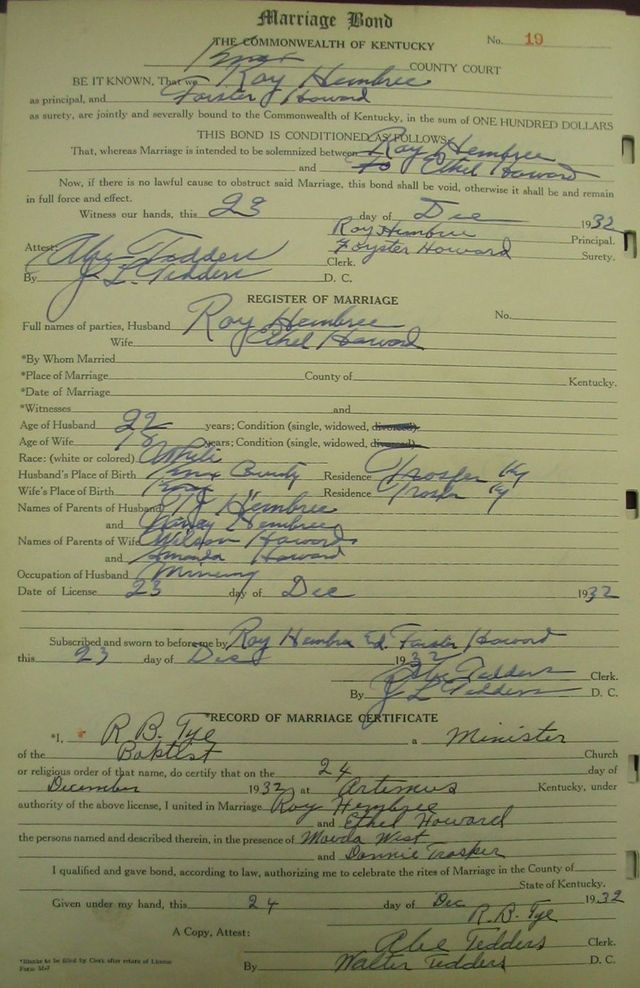 Marriage Bond
THE COMMONWEALTH OF KENTUCKY
No. 19
Knox COUNTY COURT
BE IT KNOWN, That we Roy Hembree
as principal, and Forster Howard
as surety, are jointly and severally bound to the Commonwealth of Kentucky, in the sum of ONE HUNDRED DOLLARS
THIS BOND IS CONDITIONED AS FOLLOWS:
That, whereas Marriage is intended to be solemnized between Roy Hembree
and To Ethel Howard
Now, if there is no lawful cause to obstruct said Marriage, this bond shall be void, otherwise it shall be and remain
in full force and effect.
Witness our hands, this 23 day of Dec 1932
Roy Hembree Principal.
Attest: Foyster Howard Surety.
Abe Tedders Clerk.
By J. L. Tedders D. C.
REGISTER OF MARRIAGE
Full names of parties, Husband Roy Hembree No.
Wife Ethel Howard
*By Whom Married
*Place of Marriage County of Kentucky.
*Date of Marriage
*Witnesses and
Age of Husband 22 years; Condition (single, widowed, divorced)
Age of Wife 18 years; Condition (single, widowed, divorced)
Race: (white or colored) White
Husband's Place of Birth Knox County Residence Trosper Ky
Wife's Place of Birth Knox Residence Trosper Ky
Names of Parents of Husband T J Hembree
and Nancy Hembree
Names of Parents of Wife Wilson Howard
and Amanda Howard
Occupation of Husband Mining
Date of License 23 day of Dec 1932
Subscribed and sworn to before me by Roy Hembre Ed. Forster Howard
this 23 day of Dec 1932
Abe Tedders Clerk.
By J L Tedders D. C.
*RECORD OF MARRIAGE CERTIFICATE
*I, R. B. Tye a Minister
of the Baptist Church
or religious order of that name, do certify that on the 24 day of
December 1932 at Artemus Kentucky, under
authority of the above license, I united in Marriage Roy Hembree
and Ethel Howard
the persons named and described therein, in the presence of Mavda West
and Donnie Trosper
I qualified and gave bond, according to law, authorizing me to celebrate the rites of Marriage in the County of
State of Kentucky.
Given under my hand, this 24 day of Dec 1932
R. B. Tye
A Copy, Attest:
Abe Tedders Clerk.
*Blanks to be filled by Clerk after return of License
By Walter Tedders D. C.